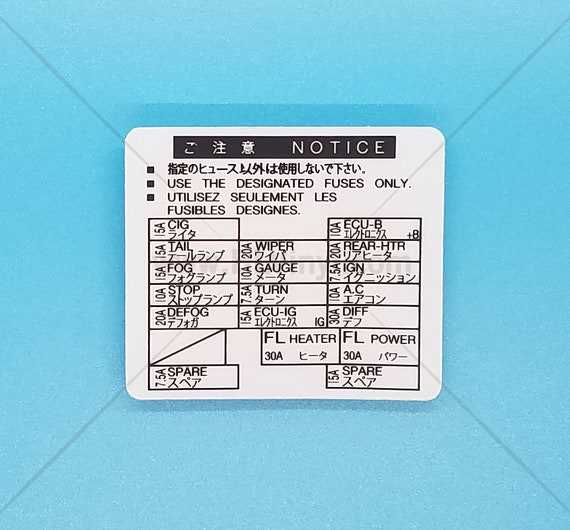 ご注意 NOTICE
■ 指定のヒューズ以外は使用しないで下さい。
■ USE THE DESIGNATED FUSES ONLY.
■ UTILISEZ SEULEMENT LES
FUSIBLES DESIGNES.
15A CIG
ライタ
10A ECU-B
エレクトロニクス +B
15A TAIL
テールランプ
20A WIPER
ワイパ
20A REAR-HTR
リアヒータ
15A FOG
フォグランプ
10A GAUGE
メータ
7.5A IGN
イグニッション
10A STOP
ストップランプ
7.5A TURN
ターン
10A A.C
エアコン
20A DEFOG
デフォガ
15A ECU-IG
エレクトロニクス IG
30A DIFF
デフ
FL HEATER
30A ヒータ
FL POWER
30A パワー
7.5A SPARE
スペア
15A SPARE
スペア